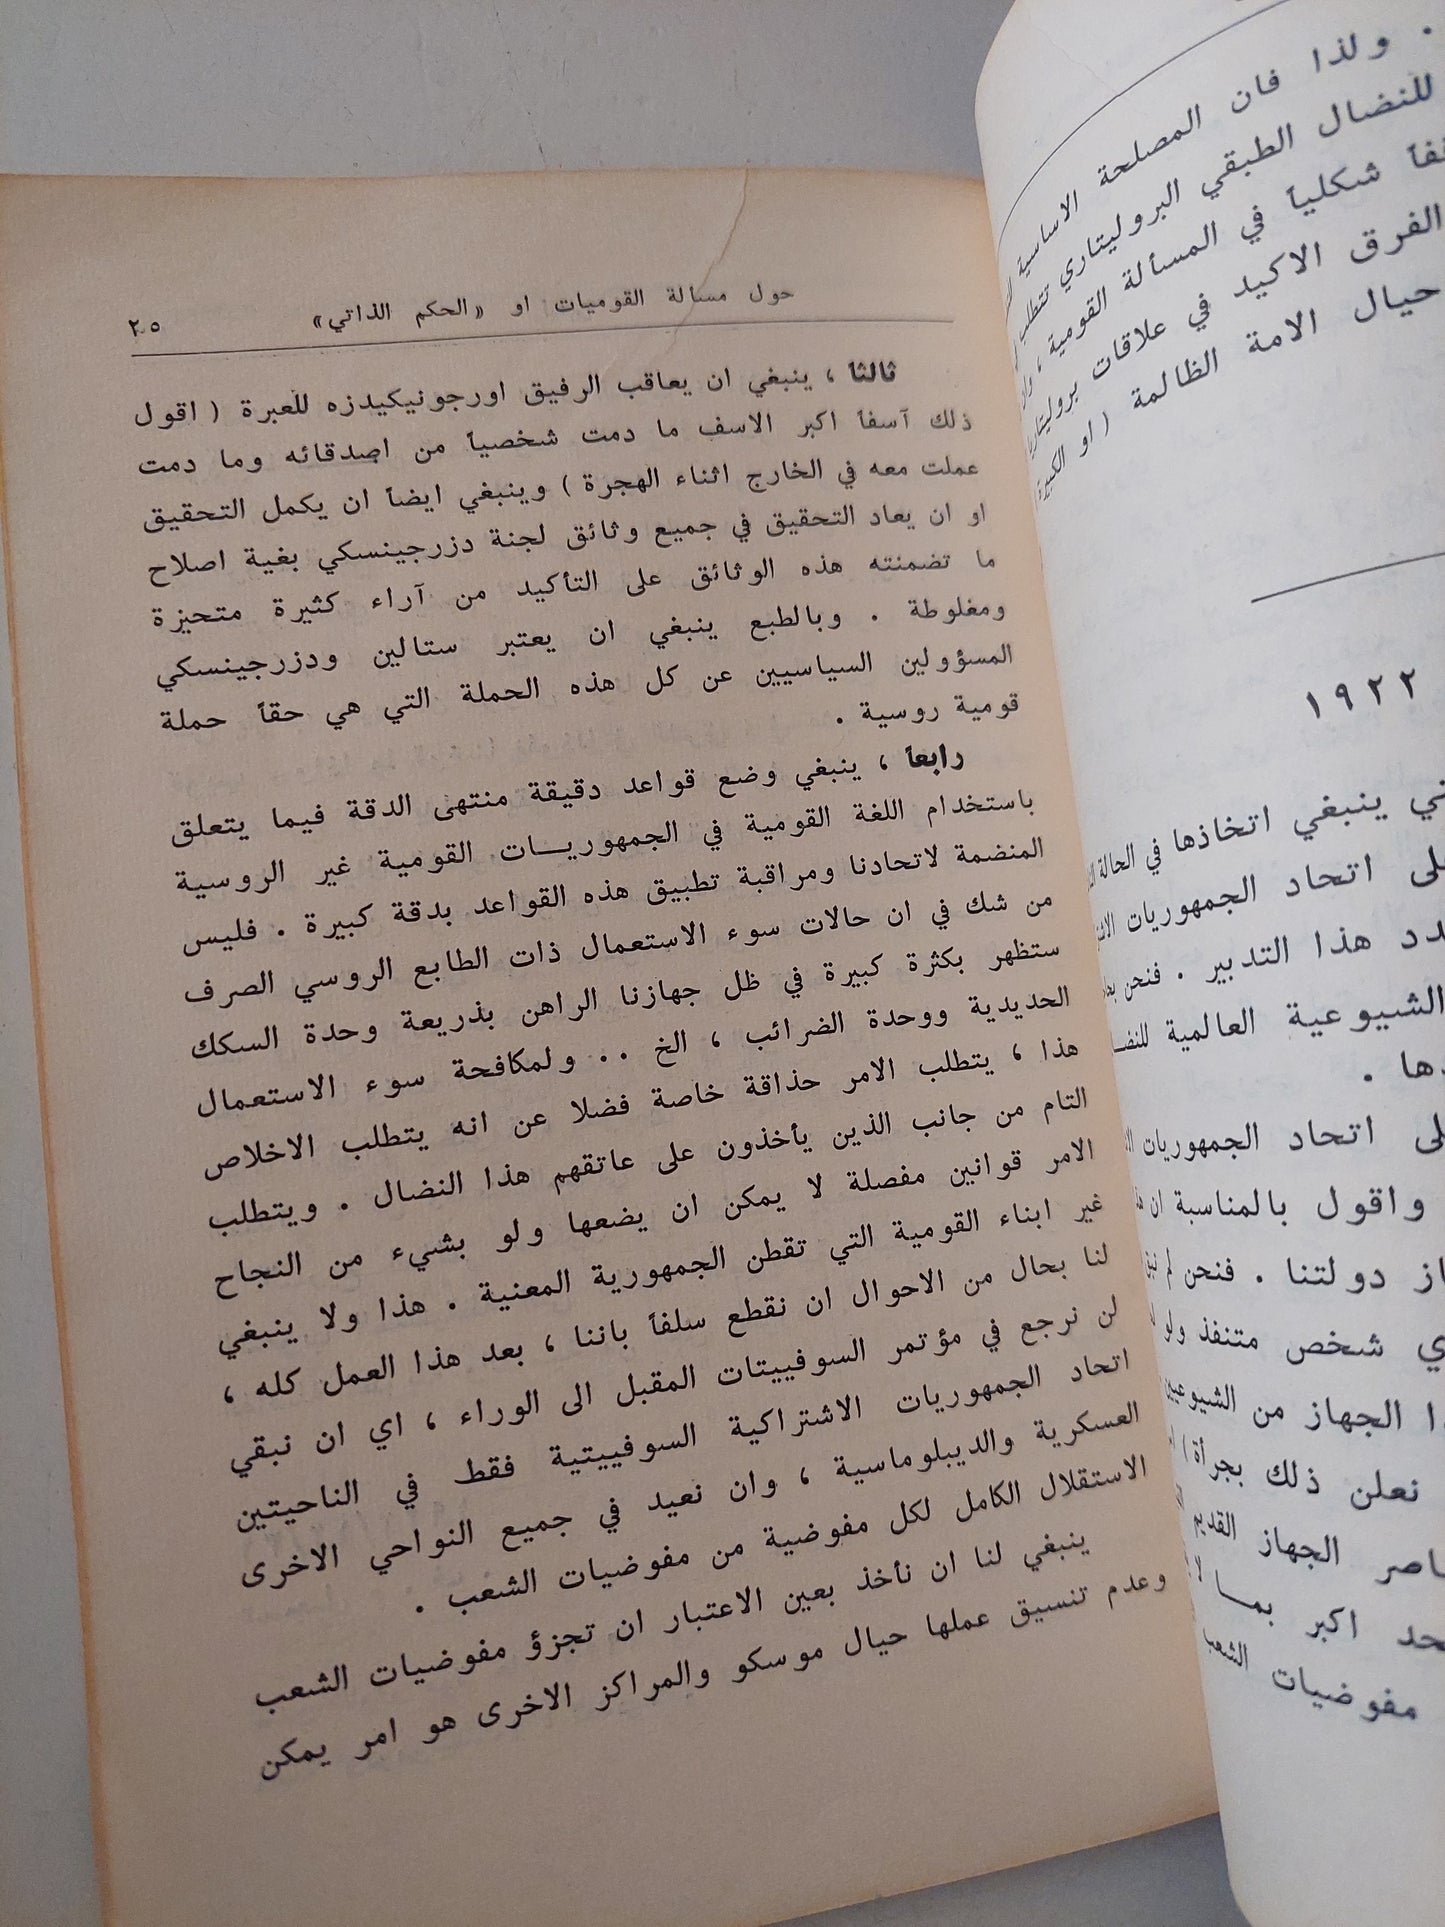 . ولذا فان المصلحة الاساسية
للنضال الطبقي البروليتاري تتطلب
شكلياً في المسألة القومية ،
الفرق الاكيد في علاقات بروليتاريا
حيال الامة الظالمة ( او الكبيرة
١٩٢٢
ينبغي اتخاذها في الحالة
اتحاد الجمهوريات
هذا التدبير . فنحن
الشيوعية العالمية
اتحاد الجمهوريات
واقول بالمناسبة ان
دولتنا . فنحن لم
شخص متنفذ ولو
الجهاز من الشيوعيين
نعلن ذلك بجرأة )
الجهاز القديم
اكبر بمـــا لا
مفوضيات الشعب
حول مسألة القوميات او «الحكم الذاتي» ٢٥
ثالثا ، ينبغي ان يعاقب الرفيق اورجونيكيدزه للعبرة ( اقول
ذلك آسفاً اكبر الاسف ما دمت شخصياً من اصدقائه وما دمت
عملت معه في الخارج اثناء الهجرة ) وينبغي ايضاً ان يكمل التحقيق
او ان يعاد التحقيق في جميع وثائق لجنة دزرجينسكي بغية اصلاح
ما تضمنته هذه الوثائق على التأكيد من آراء كثيرة متحيزة
ومغلوطة . وبالطبع ينبغي ان يعتبر ستالين ودزرجينسكي
المسؤولين السياسيين عن كل هذه الحملة التي هي حقاً حملة
قومية روسية .
رابعاً ، ينبغي وضع قواعد دقيقة منتهى الدقة فيما يتعلق
باستخدام اللغة القومية في الجمهوريـــات القومية غير الروسية
المنضمة لاتحادنا ومراقبة تطبيق هذه القواعد بدقة كبيرة . فليس
من شك في ان حالات سوء الاستعمال ذات الطابع الروسي الصرف
ستظهر بكثرة كبيرة في ظل جهازنا الراهن بذريعة وحدة السكك
الحديدية ووحدة الضرائب ، الخ .. ولمكافحة سوء الاستعمال
هذا ، يتطلب الامر حذاقة خاصة فضلا عن انه يتطلب الاخلاص
التام من جانب الذين يأخذون على عاتقهم هذا النضال . ويتطلب
الامر قوانين مفصلة لا يمكن ان يضعها ولو بشيء من النجاح
غير ابناء القومية التي تقطن الجمهورية المعنية . هذا ولا ينبغي
لنا بحال من الاحوال ان نقطع سلفاً باننا ، بعد هذا العمل كله ،
لن نرجع في مؤتمر السوفييتات المقبل الى الوراء ، اي ان نبقي
اتحاد الجمهوريات الاشتراكية السوفييتية فقط في الناحيتين
العسكرية والديبلوماسية ، وان نعيد في جميع النواحي الاخرى
الاستقلال الكامل لكل مفوضية من مفوضيات الشعب .
ينبغي لنا ان نأخذ بعين الاعتبار ان تجزؤ مفوضيات الشعب
وعدم تنسيق عملها حيال موسكو والمراكز الاخرى هو امر يمكن